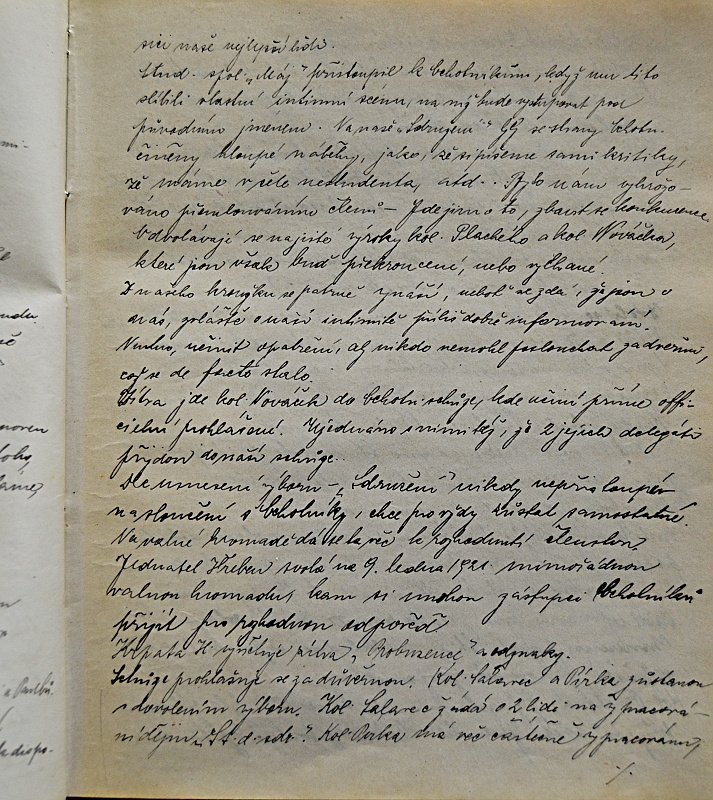 sici naše nejlepší lidi.
Stud. spol. „Máj" přistoupil k behotníkům, když mu tito
slíbili vlastní intimní scénu, na níž bude vystupovat pod
původním jmenem. Na naše „Sdružení" se strany behotn.
činěny hloupé náběhy, jako, že si píšeme sami kritiky,
že máme v čele nestudenta, atd.. Bylo nám vyhrožo-
váno přemlouváním členů – Jde jim o to, zbavit se konkurence.
Odvolávají se na jisté výroky kol. Plachého a kol. Nováčka,
které jsou však buď překroucení, nebo vylhané.
Z našeho kroužku se patrně vynáší, neboť se zdá, že jsou o
nás, zvláště o naší intimitě příliš dobře informováni.
Nutno, učinit opatření, aby nikdo nemohl poslouchat za dveřmi,
což se de facto stalo.
Zítra jde kol. Nováček do behotn. schůze, kde učiní přímé offi-
cielní prohlášení. Ujednáno s nimi též, že 2 jejich delegáti
přijdou do naší schůze.
Dle usnesení výboru – „Sdružení" nikdy nepřistoupí
na sloučení s behotníky, chce provždy zůstat samostatné.
Na valné hromadě dá se ta věc k rozhodnutí členstvu.
Jednatel Hreben svolá na 9. ledna 1921. mimořádnou
valnou hromadu, kam si mohou zástupci behotníků
přijít pro rozhodnou odpověď.
Krpata H. vysvětluje zítra „Probuzence" a odznaky.
Schůze prohlašuje se za důvěrnou. Kol. Salavec a Pírka zůstanou
s dovolením výboru. Kol. Salavec žádá o 2 lidi na vypracová-
ní dějin „St. d. sdr." Kol. Pírka má věc částečně vypracovanou,